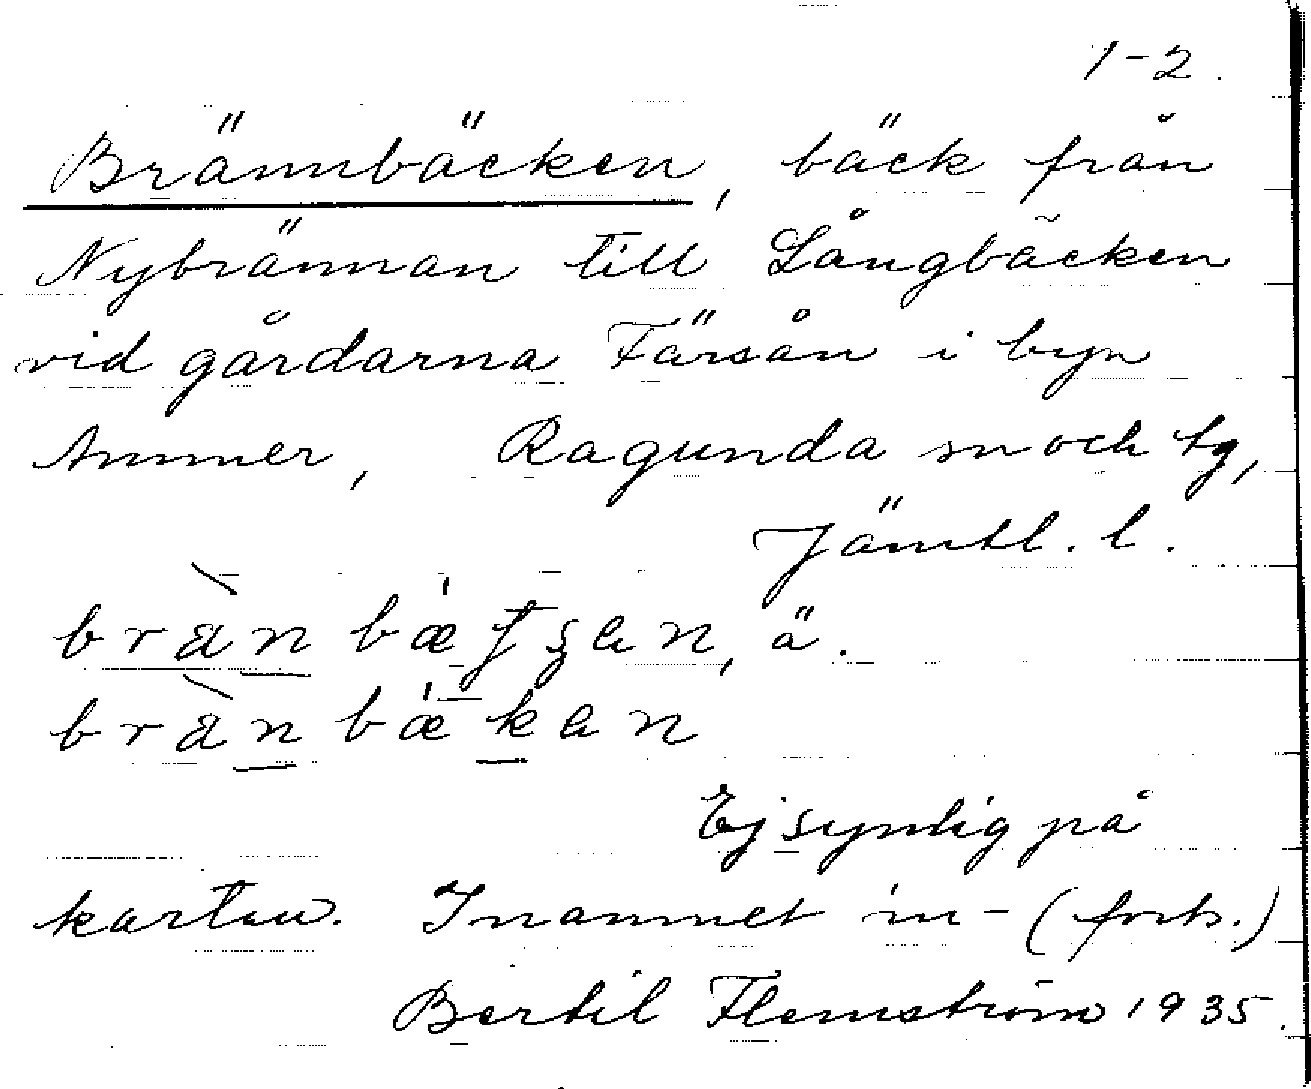 1-2.
Brännbäcken, bäck från
Nybrännan till Långbäcken
vid gårdarna Färsån i byn
Ammer, Ragunda sn och tg,
Jämtl. l.
brànbǽʈʂan, ä.
brànbǽkan
Ej synlig på
kartan. I namnet in- (forts.)
Bertil Flemström 1935.